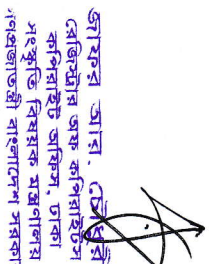 জাফর আর. চৌধুরী
রেজিস্ট্রার অফ কপিরাইটস
কপিরাইট অফিস, ঢাকা
সংস্কৃতি বিষয়ক মন্ত্রণালয়
গণপ্রজাতন্ত্রী বাংলাদেশ সরকার